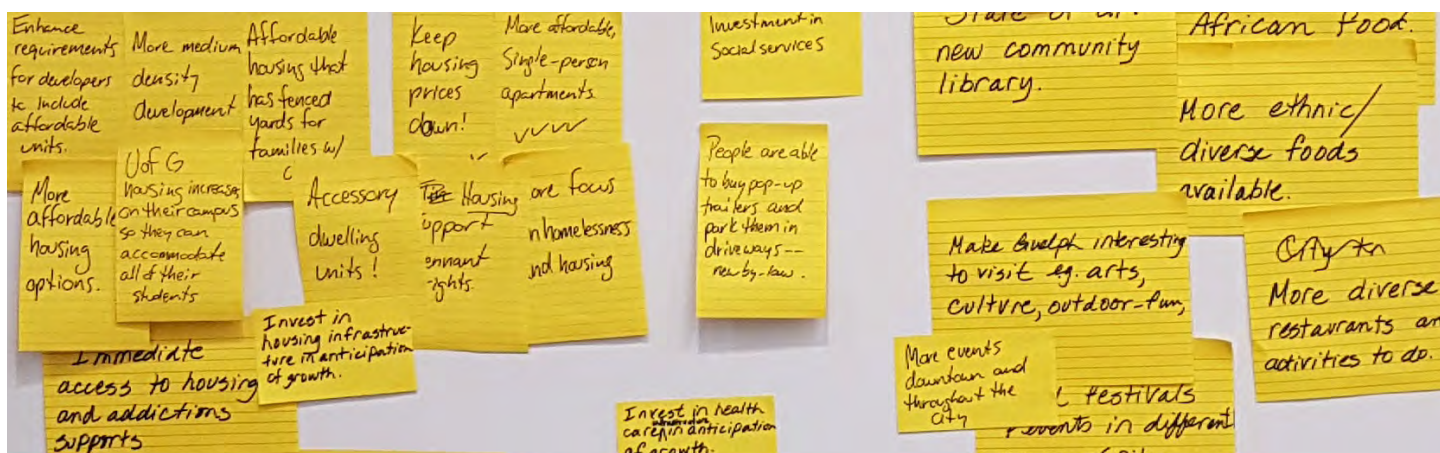 Enhance
requirements
for developers
to include
affordable
units.
More medium
density
development
Affordable
housing that
has fenced
yards for
families w/
Keep
housing
prices
down!
More affordable,
Single-person
apartments
Investment in
Social services
State of
new community
library.
African food.
More ethnic/
diverse foods
available.
More
affordable
housing
options.
U of G
housing increases
on their campus
so they can
accommodate
all of their
students
Accessory
dwelling
units!
Housing
upport
ennant
ights.
ore focus
n homelessness
nd housing
People are able
to buy pop-up
trailers and
park them in
driveways --
new by-law.
Make Guelph interesting
to visit eg. arts,
culture, outdoor-fun,
City to
More diverse
restaurants an
activities to do.
Immediate
access to housing
and addictions
supports
Invest in
housing infrastruc-
ture in anticipation
of growth.
More events
downtown and
throughout the
City
festivals
events in different
Invest in health
care in anticipation
of growth.